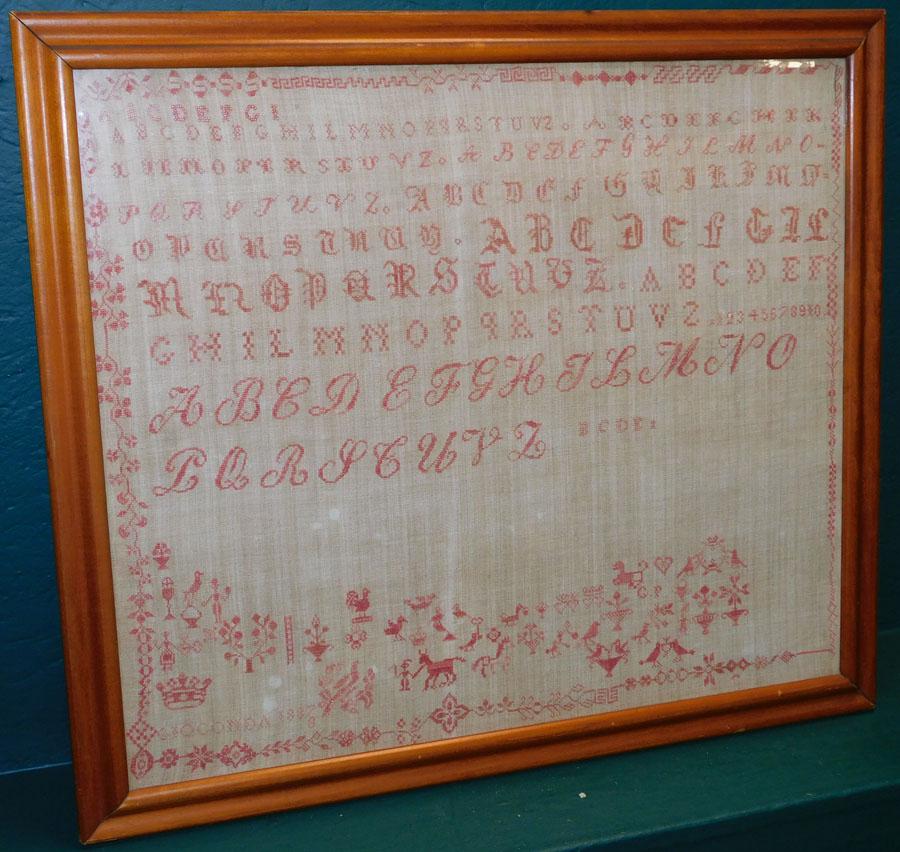 A B C D E F G I
A B C D E F G H I L M N O P Q R S T U V Z . A B C D E F G H I K
L M N O P Q R S T U V Z . A B C D E F G H I L M N O -
P Q R S T U V Z . A B C D E F G H I K L M N
O P Q R S T U V Z . A B C D E F G I L
M N O P Q R S T U V Z . A B C D E F
G H I L M N O P Q R S T U V Z . 1234567890.
A B C D E F G H I L M N O
P Q R S T U V Z B C D E I
GIOCONDA 188